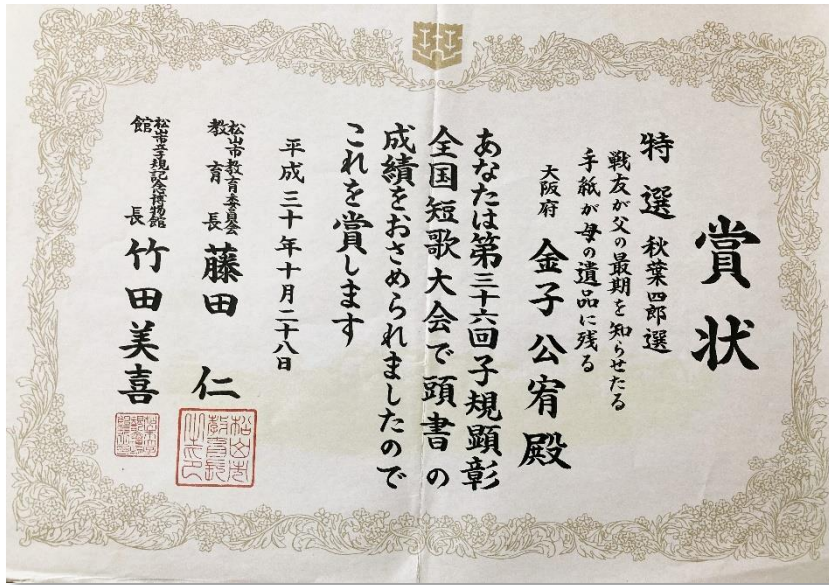 賞状
特選 秋葉四郎選
戦友が父の最期を知らせたる
手紙が母の遺品に残る
大阪府 金子公宥殿
あなたは第三十六回子規顕彰
全国短歌大会で頭書の
成績をおさめられましたので
これを賞します
平成三十年十月二十八日
松山市教育委員会
教育長 藤田仁
松山市立子規記念博物館
館長 竹田美喜